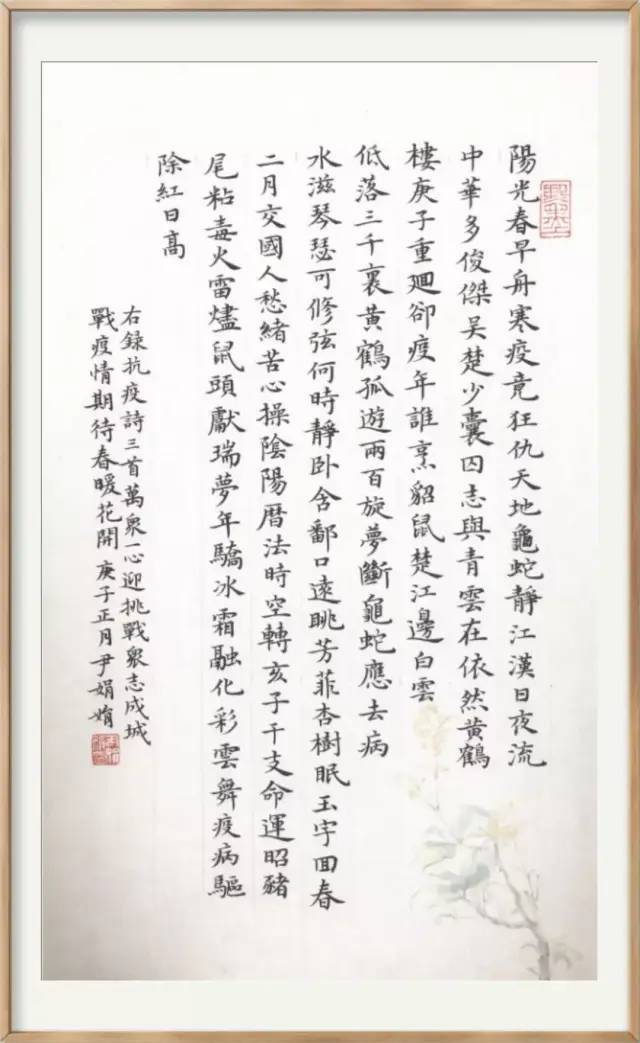 陽光春早舟寒疫竟狂仇天地龜蛇靜江漢日夜流
中華多俊傑吴楚少囊囚志與青雲在依然黄鶴
樓庚子重廻卻疫年誰烹貂鼠楚江邊白雲
低落三千裏黄鶴孤遊兩百旋夢斷龜蛇應去病
水滋琴瑟可修弦何時靜卧含鄱口遠眺芳菲杏樹眠玉宇回春
二月交國人愁緒苦心操陰陽曆法時空轉亥子干支命運昭豬
尾粘毒火雷燼鼠頭獻瑞夢年驕冰霜融化彩雲舞疫病驅
除紅日高
右録抗疫詩三首萬衆一心迎挑戰衆志成城
戰疫情期待春暖花開庚子正月尹娟